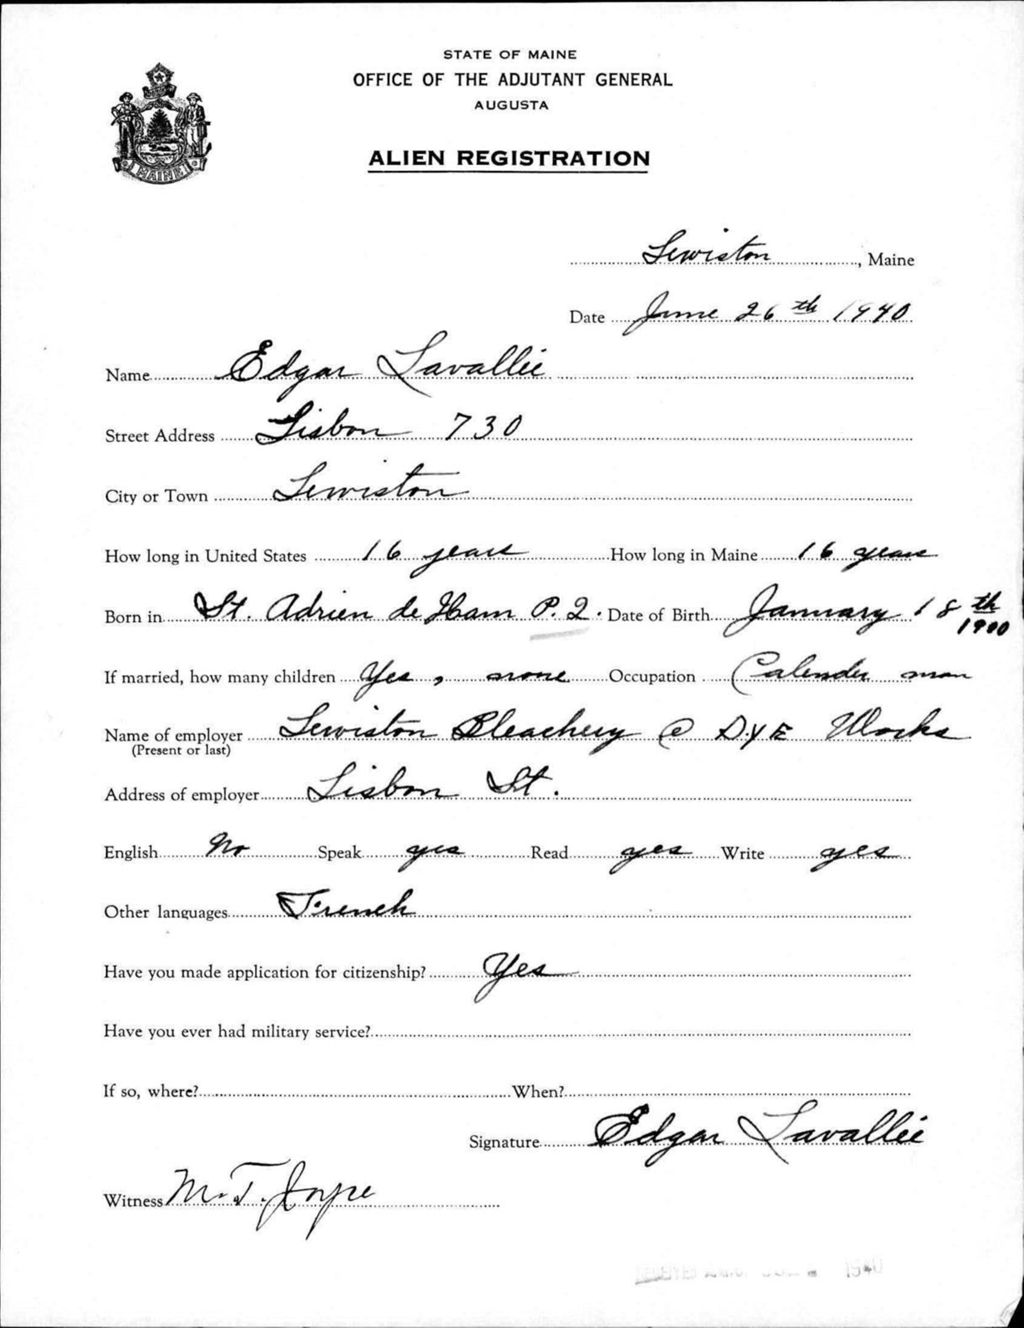 STATE OF MAINE
OFFICE OF THE ADJUTANT GENERAL
AUGUSTA
ALIEN REGISTRATION
MAINE
Lewiston, Maine
Date June 26th 1940
Name Edgar Lavallée
Street Address Lisbon 730
City or Town Lewiston
How long in United States 16 years How long in Maine 16 years
Born in St. Adrien de Ham P.Q. Date of Birth January 18th 1900
If married, how many children Yes, none Occupation Calender man
Name of employer Lewiston Bleachery @ DYE Works
(Present or last)
Address of employer Lisbon St.
English No Speak yes Read yes Write yes
Other languages French
Have you made application for citizenship? Yes
Have you ever had military service?
If so, where? When?
Signature Edgar Lavallée
Witness M. T.
RECEIVED 1940